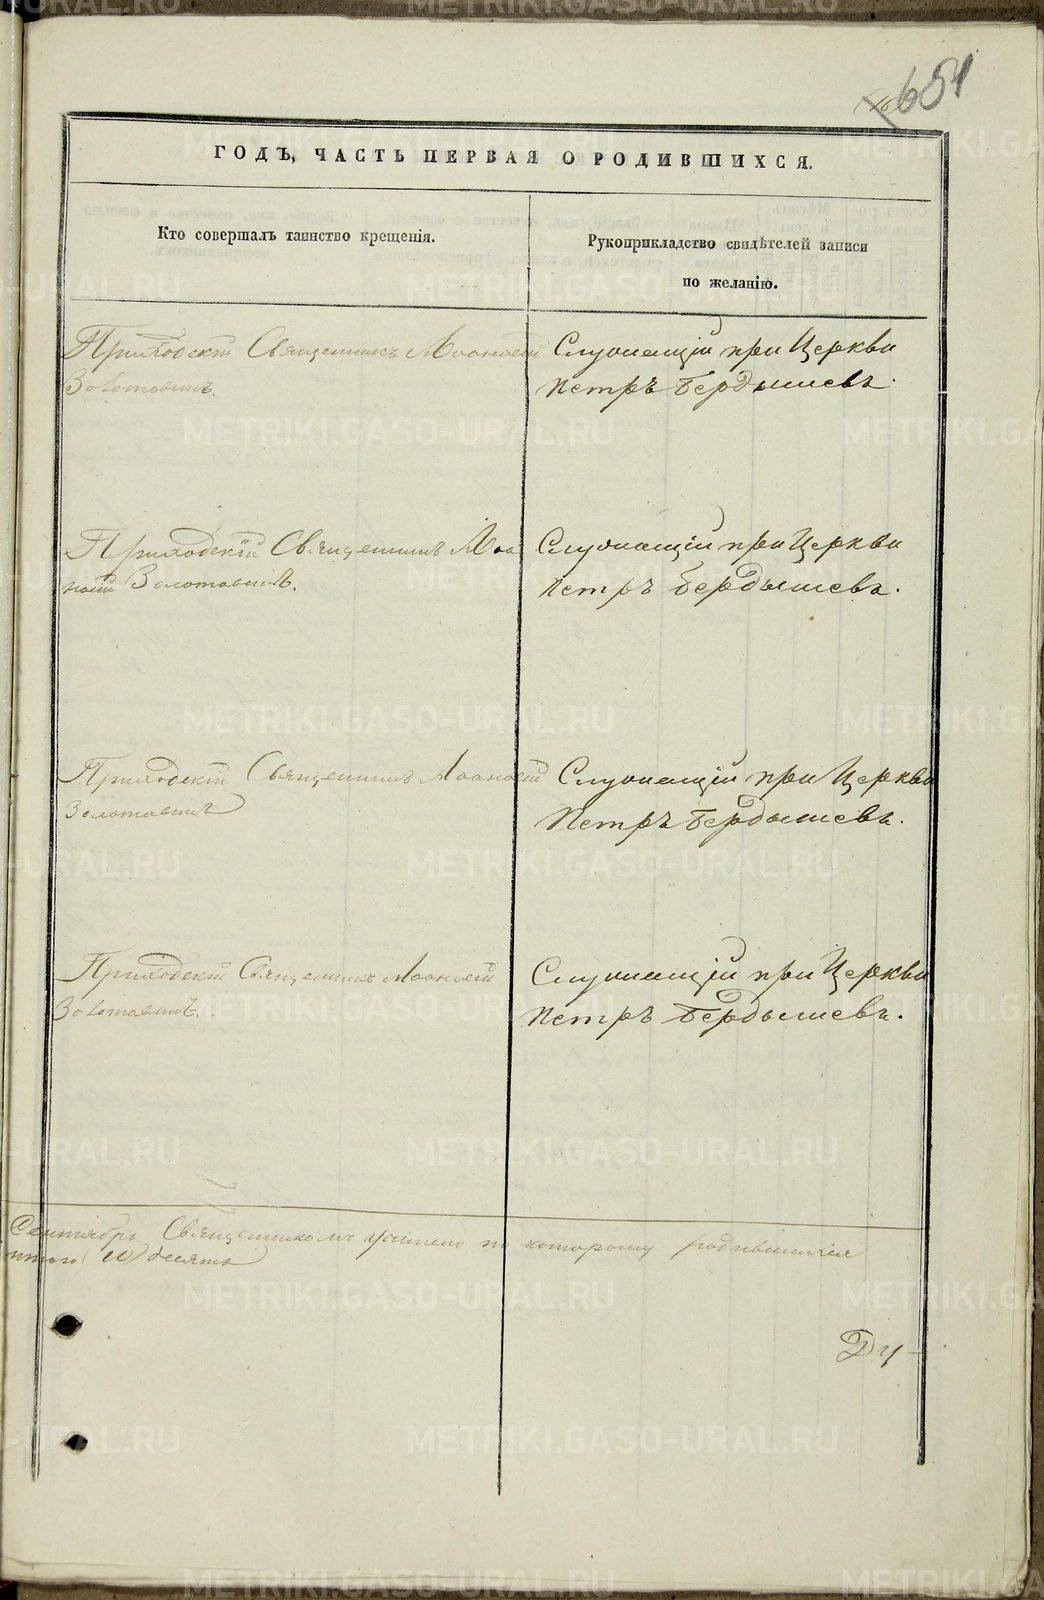 651
ГОДЪ, ЧАСТЬ ПЕРВАЯ О РОДИВШИХСЯ.
Кто совершалъ таинство крещенія.
Рукоприкладство свидѣтелей записи
по желанію.
Приходскій Священникъ
Золотавинъ.
Служащій при Церкви
Петръ Бердышевъ.
Приходскій Священникъ
Золотавинъ.
Служащій при Церкви
Петръ Бердышевъ.
Приходскій Священникъ
Золотавинъ
Служащій при Церкви
Петръ Бердышевъ.
Приходскій Священникъ
Золотавинъ.
Служащій при Церкви
Петръ Бердышевъ.
Сентябрь Священникомъ по которому родившихся
(10) десять
Ду-
METRIKI.GASO-URAL.RU